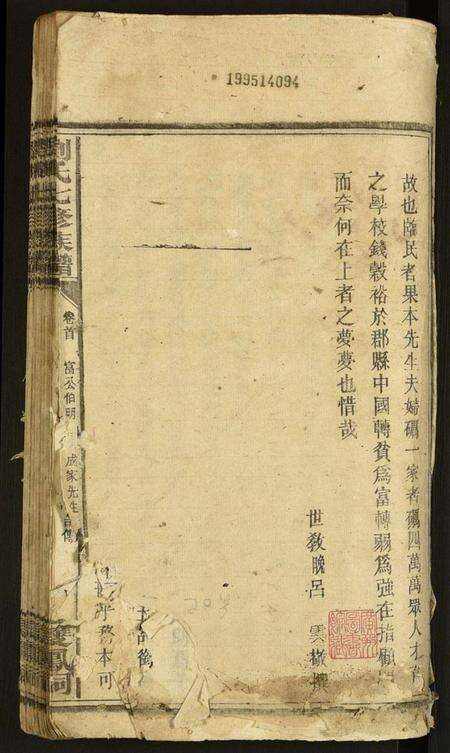 199514094
故也蒞民者果本先生夫婦礪一家者礪四萬萬眾人才
之學校錢穀裕於郡縣中國轉貧爲富轉弱爲強在指顧
而奈何在上者之夢夢也惜哉
世敎晚呂雲撰
劉氏七修族譜
卷首
富公伯明
成家先生
務本可